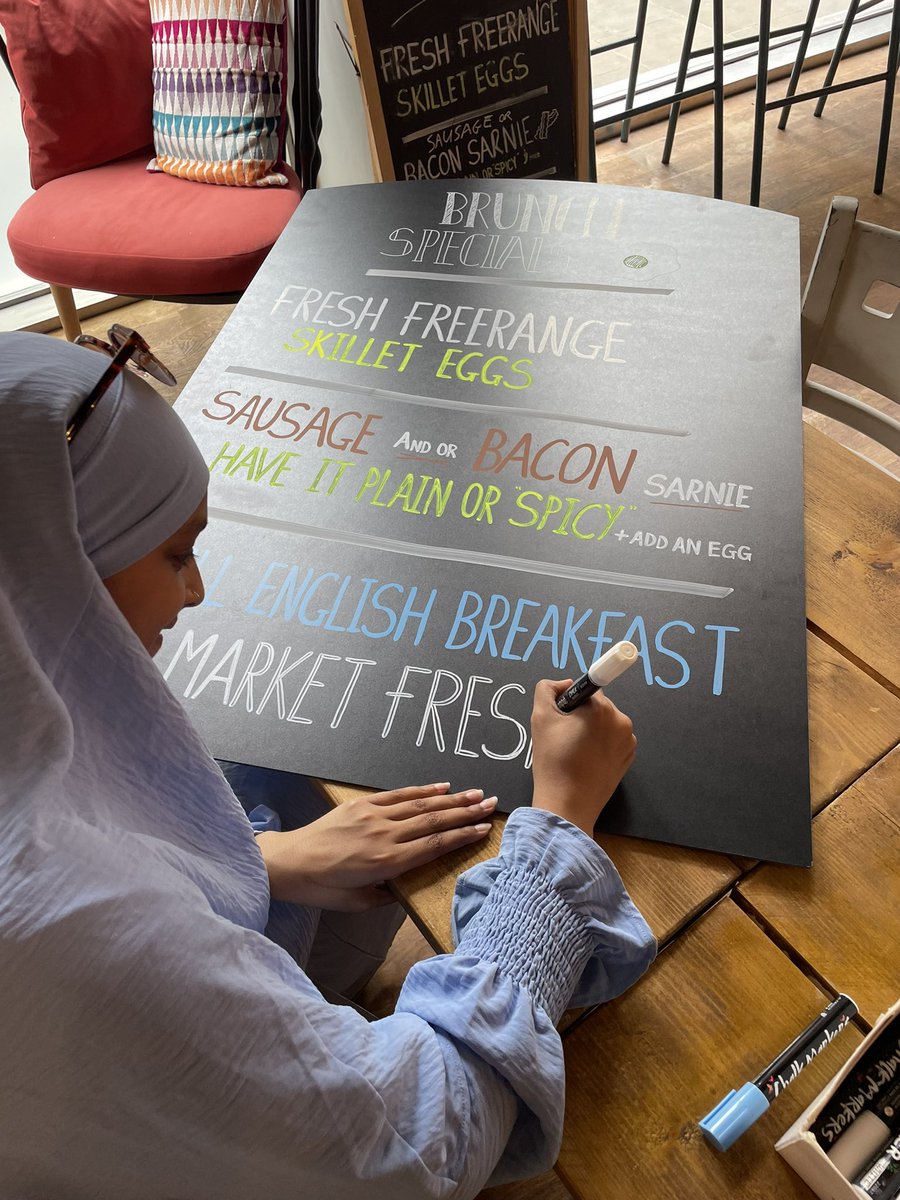 FRESH FREERANGE
SKILLET EGGS
SAUSAGE OR
BACON SARNIE
OR "SPICY"
BRUNCH
SPECIALS
FRESH FREERANGE
SKILLET EGGS
SAUSAGE AND OR BACON SARNIE
HAVE IT PLAIN OR "SPICY" + ADD AN EGG
ENGLISH BREAKFAST
MARKET FRESH
Chalk Markers
Chalk Markers